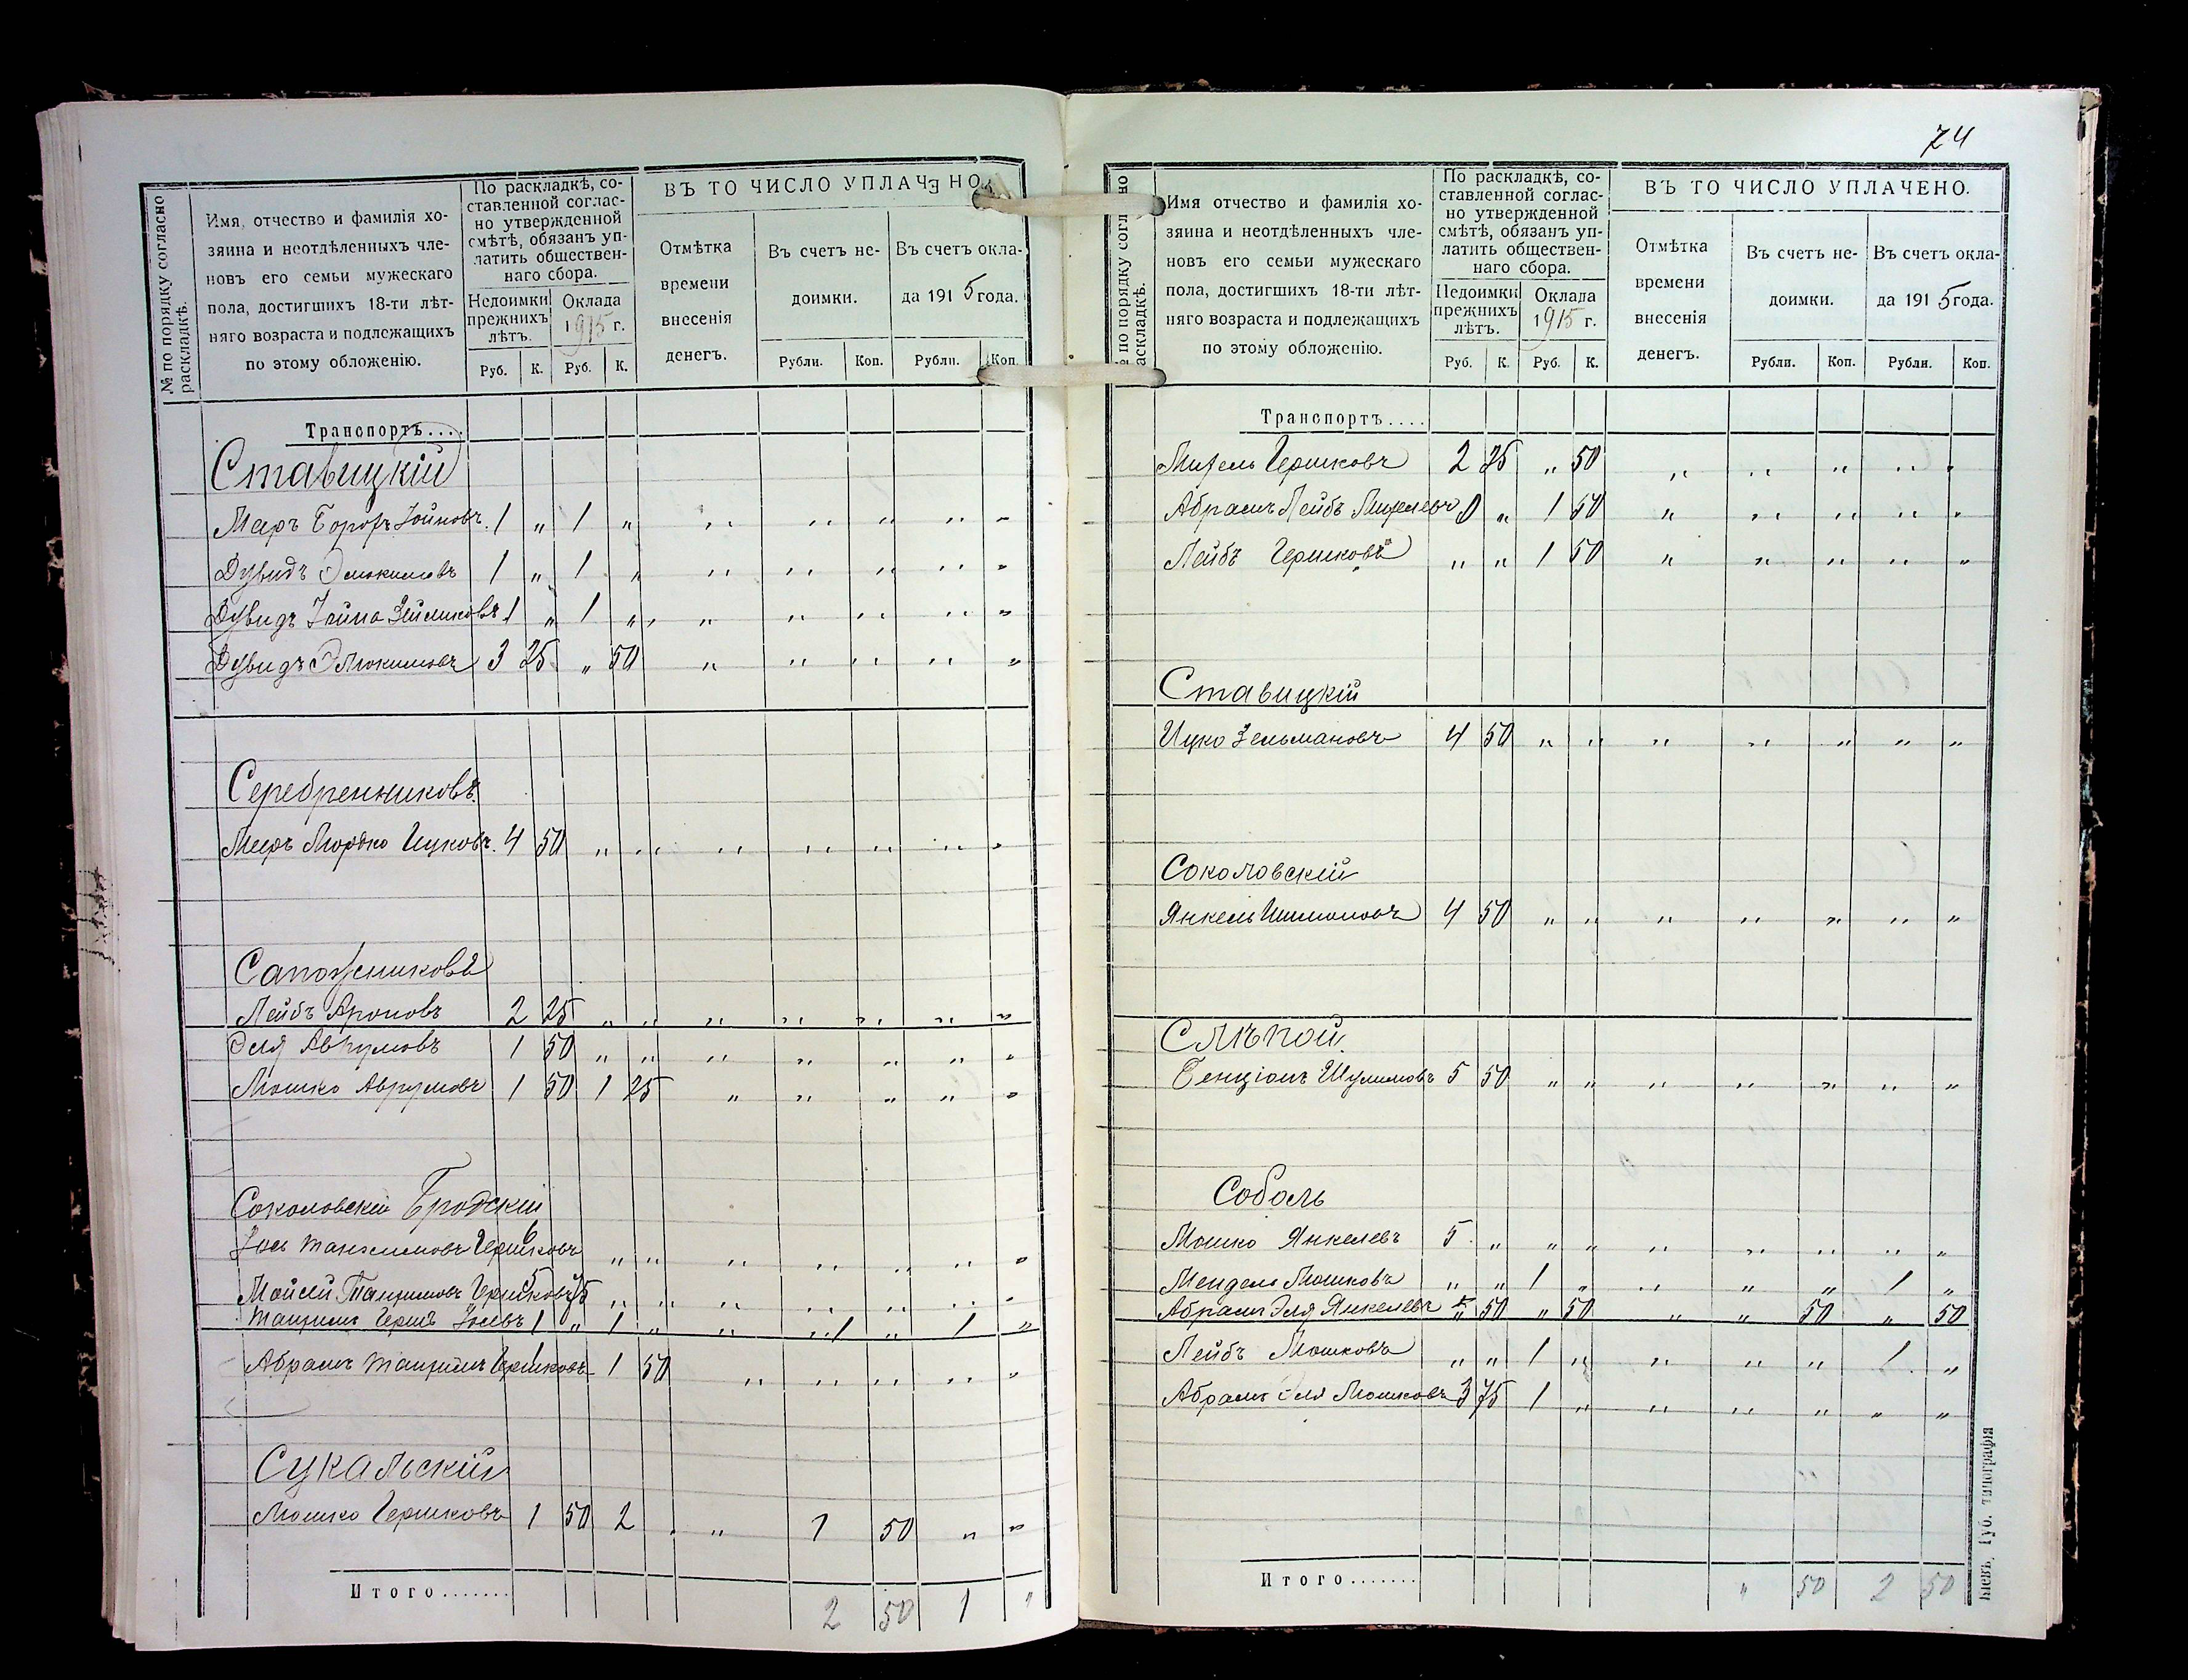 № по порядку согласно раскладкѣ.
Имя, отчество и фамилія хо-
зяина и неотдѣленныхъ чле-
новъ его семьи мужескаго
пола, достигшихъ 18-ти лѣт-
няго возраста и подлежащихъ
по этому обложенію.
По раскладкѣ, со-
ставленной соглас-
но утвержденной
смѣтѣ, обязанъ уп-
латить обществен-
наго сбора.
Недоимки
прежнихъ
лѣтъ.
Оклада
1915 г.
Руб. К. Руб. К.
ВЪ ТО ЧИСЛО УПЛАЧЕНО.
Отмѣтка
времени
внесенія
денегъ.
Въ счетъ не-
доимки.
Въ счетъ окла-
да 1915 года.
Рубли. Коп. Рубли. Коп.
Транспортъ....
Ставицкій
Меръ Борохъ Іойновъ. 1 „ 1 „ „ „ „ „ „
Дувидъ Элюкимовъ 1 „ 1 „ „ „ „ „ „
Дувидъ Іойна Зеймиковъ 1 „ 1 „ „ „ „ „ „
Дувидъ Элюкимовъ 3 25 „ 50 „ „ „ „ „
Серебренниковъ.
Меръ Мордко Ицковъ. 4 50 „ „ „ „ „ „ „
Сапожниковъ
Лейбъ Ароновъ 2 25 „ „ „ „ „ „ „
Эля Аврумовъ 1 50 „ „ „ „ „ „ „
Мошко Аврумовъ 1 50 1 25 „ „ „ „ „
Соколовскій Бродскій
Іось Танхимовъ Гершковъ 6 „ „ „ „ „ „ „
Мойсей Танхимовъ Гершковъ 5 75 „ „ „ „ „ „ „
Танхимъ Гершъ Іосевъ 1 „ 1 „ „ 1 „ 1 „
Абрамъ Танхимъ Гершковъ 1 50 „ „ „ „ „
Сукальскій
Мошко Гершковъ 1 50 2 „ „ 1 50 „ „
Итого....... 2 50 1 „
74
№ по порядку согласно раскладкѣ.
Имя отчество и фамилія хо-
зяина и неотдѣленныхъ чле-
новъ его семьи мужескаго
пола, достигшихъ 18-ти лѣт-
няго возраста и подлежащихъ
по этому обложенію.
По раскладкѣ, со-
ставленной соглас-
но утвержденной
смѣтѣ, обязанъ уп-
латить обществен-
наго сбора.
Недоимки
прежнихъ
лѣтъ.
Оклада
1915 г.
Руб. К. Руб. К.
ВЪ ТО ЧИСЛО УПЛАЧЕНО.
Отмѣтка
времени
внесенія
денегъ.
Въ счетъ не-
доимки.
Въ счетъ окла-
да 1915 года.
Рубли. Коп. Рубли. Коп.
Транспортъ....
Михель Гершковъ 2 25 „ 50 „ „ „ „ „
Абрамъ Лейбъ Михелевъ „ 1 50 „ „ „ „ „
Лейбъ Гершковъ „ „ 1 50 „ „ „ „ „
Ставицкій
Ицко Зельмановъ 4 50 „ „ „ „ „ „ „
Соколовскій
Янкель Шимоновъ 4 50 „ „ „ „ „ „ „
Слѣпой
Бенціонъ Шулимовъ 5 50 „ „ „ „ „ „ „
Соболь
Мошко Янкелевъ 5 „ „ „ „ „ „ „ „
Мендель Мошковъ „ „ 1 „ „ „ „ 1 „
Абрамъ Эля Янкелевъ „ 50 „ 50 „ „ 50 „ 50
Лейбъ Мошковъ „ „ 1 „ „ „ „ 1 „
Абрамъ Эля Мошковъ 3 75 1 „ „ „ „ „ „
Итого....... „ 50 2 50
Кіевъ, Губ. типографія